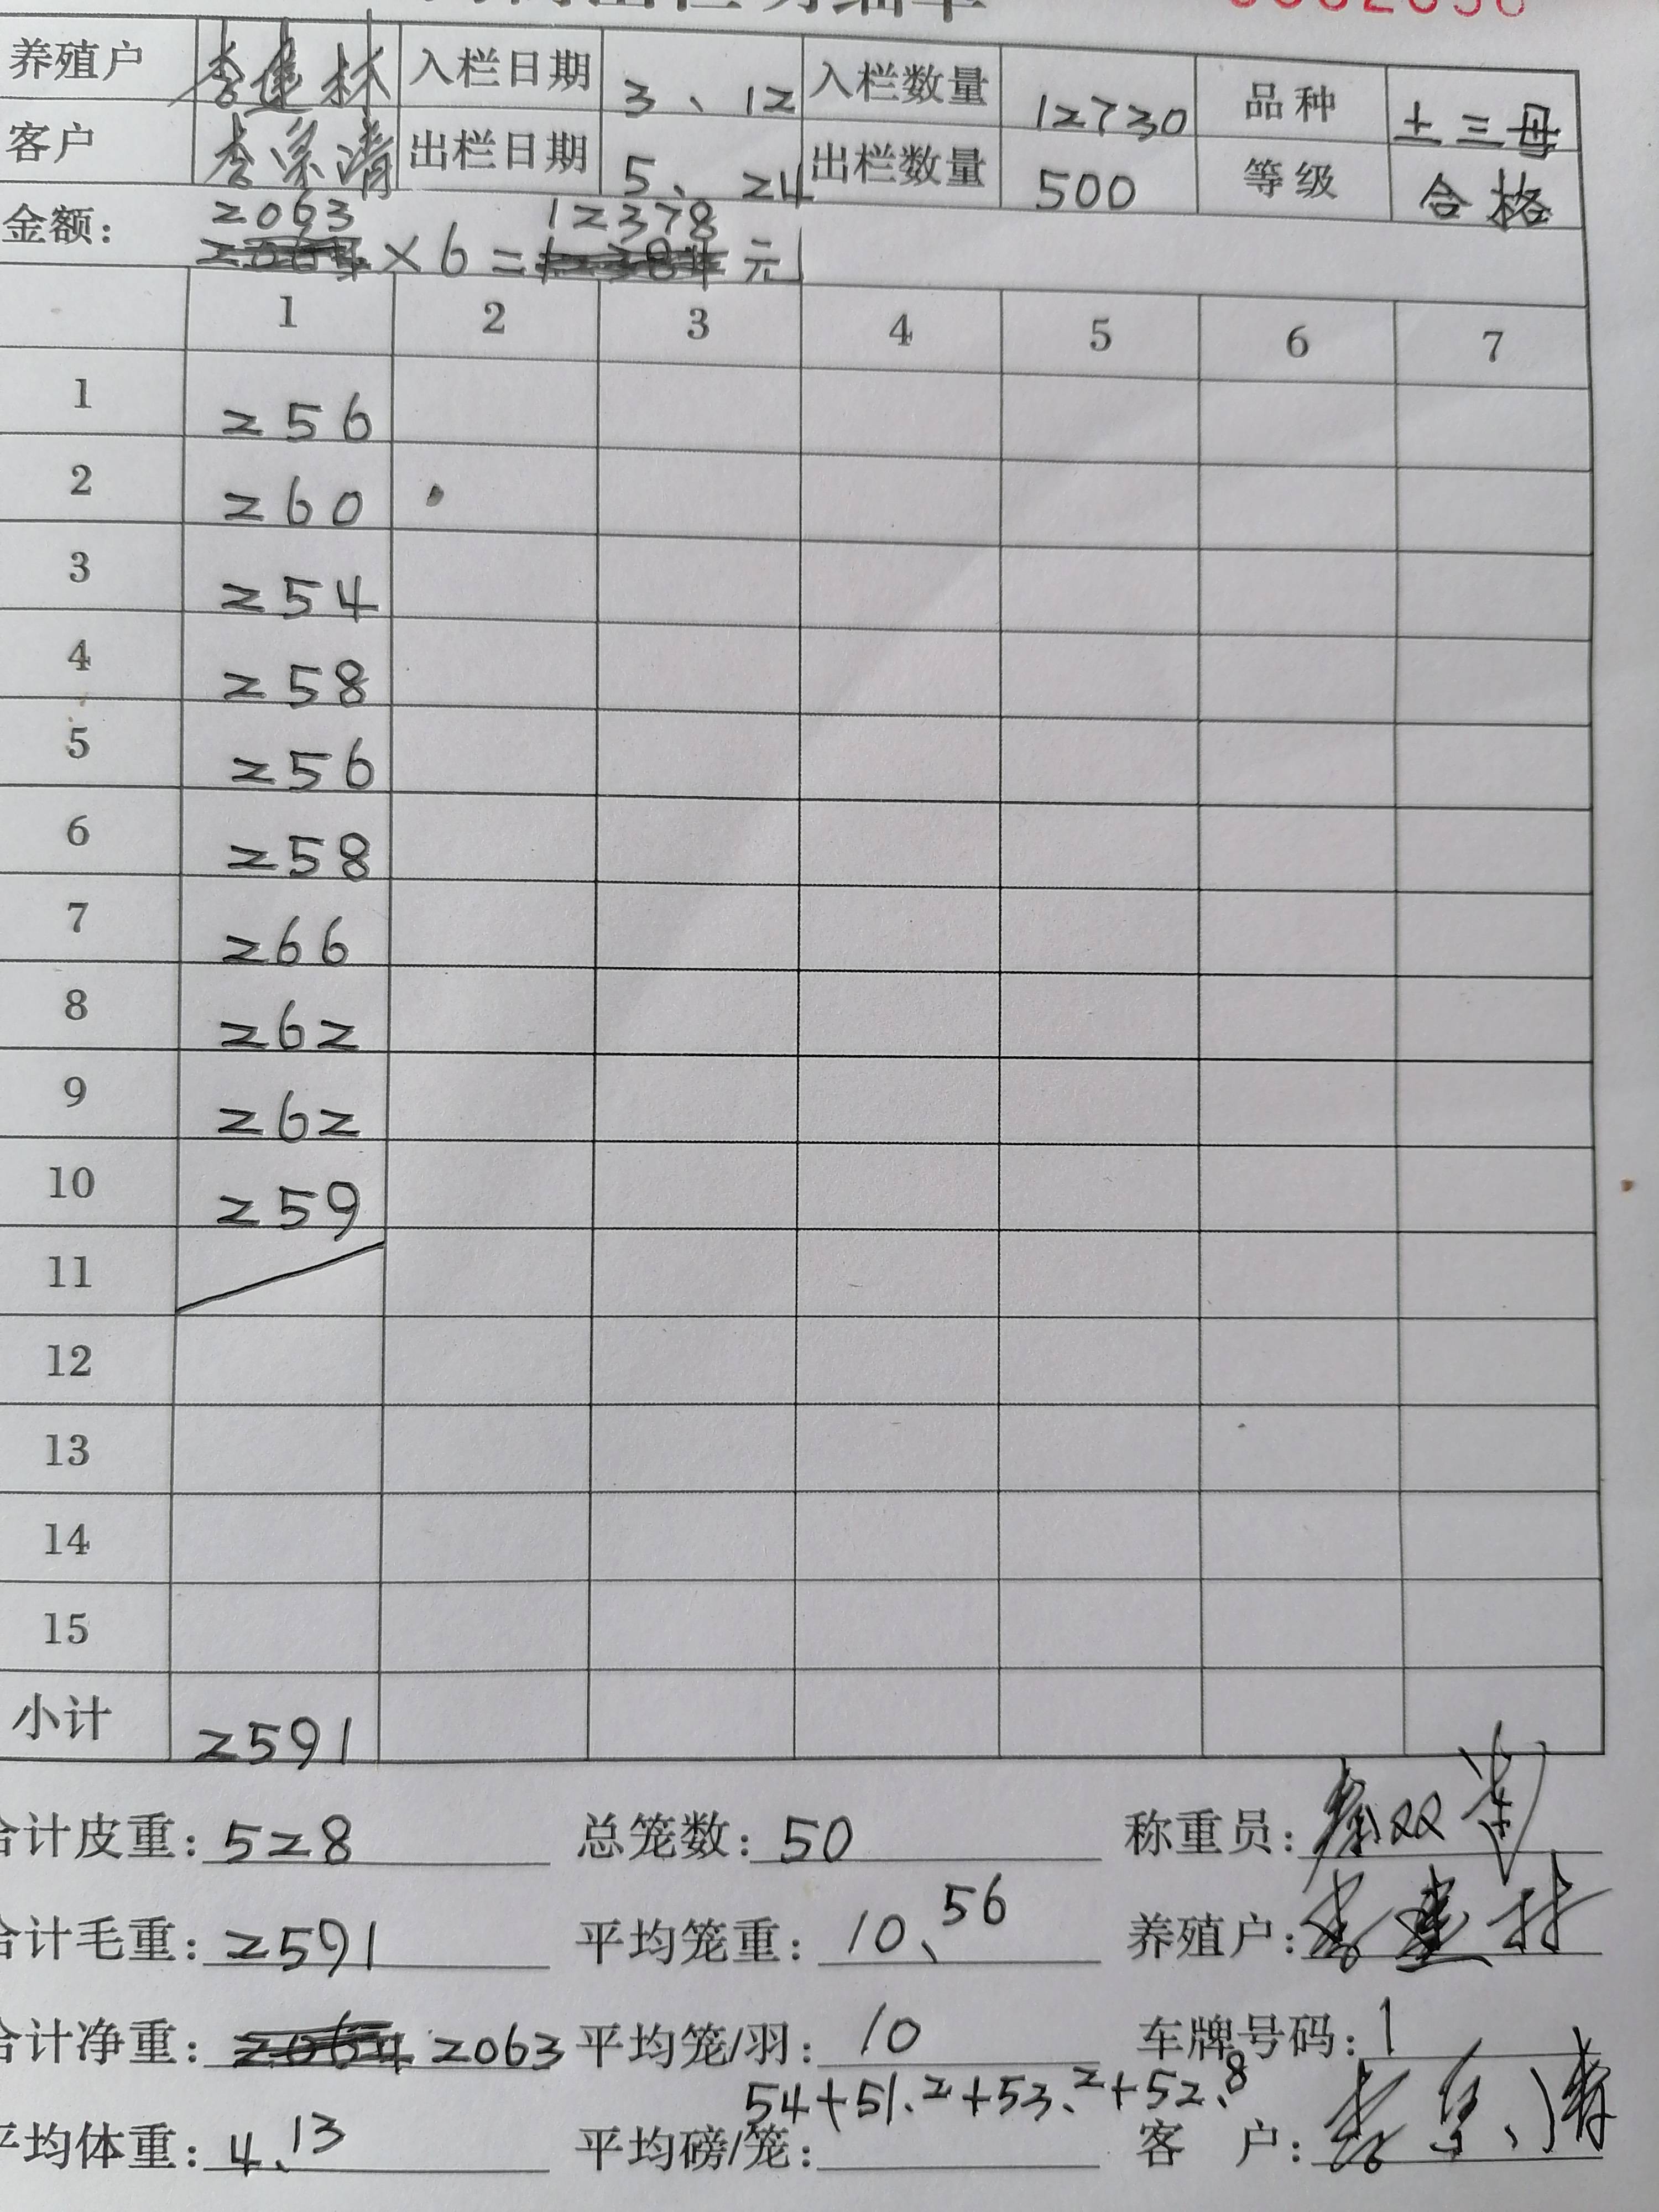 养殖户 李建林 入栏日期 3、12 入栏数量 12730 品种 土三母
客户 李宗清 出栏日期 5、24 出栏数量 500 等级 合格
2063 12378
金额: ×6= 元
1 2 3 4 5 6 7
1 256
2 260
3 254
4 258
5 256
6 258
7 266
8 262
9 262
10 259
11
12
13
14
15
小计 2591
合计皮重: 528 总笼数: 50 称重员:
合计毛重: 2591 平均笼重: 10、56 养殖户: 李建林
合计净重: 2063 平均笼/羽: 10 车牌号码: 1
54+51.2+53.2+52.8
平均体重: 4、13 平均磅/笼: 客 户: